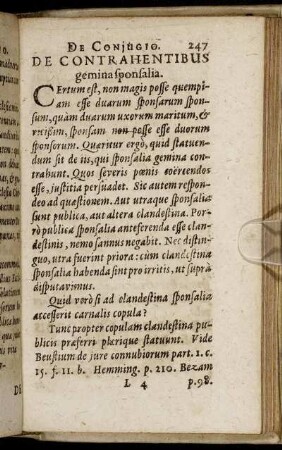 DE CONJUGIO. 247
DE CONTRAHENTIBUS
gemina sponsalia.
CErtum est, non magis posse quempi-
am esse duarum sponsarum spon-
sum, quàm duarum uxorum maritum, &
rursum, sponsam non posse esse duorum
sponsorum. Quæritur ergò, quid statuen-
dum sit de iis, qui sponsalia gemina con-
trahunt. Quos severis pœnis coërcendos
esse, justitia persuadet. Sic autem respon-
deo ad quæstionem. Aut utraque sponsaliæ
sunt publica, aut altera clandestina. Por-
rò publica sponsalia anteferenda esse clan-
destinis, nemo sannus negabit. Nec distin-
guo, utra fuerint priora: cùm clandestina
sponsalia habenda sint pro irritis, ut suprà
disputavimus.
Quid verò si ad clandestina sponsalia
accesserit carnalis copula?
Tunc propter copulam clandestina pu-
blicis præferri plerique statuunt. Vide
Beustium de jure connubiorum part. 1. c.
15. f. 11. b. Hemming. p. 210. Bezam
L 4 p. 98.